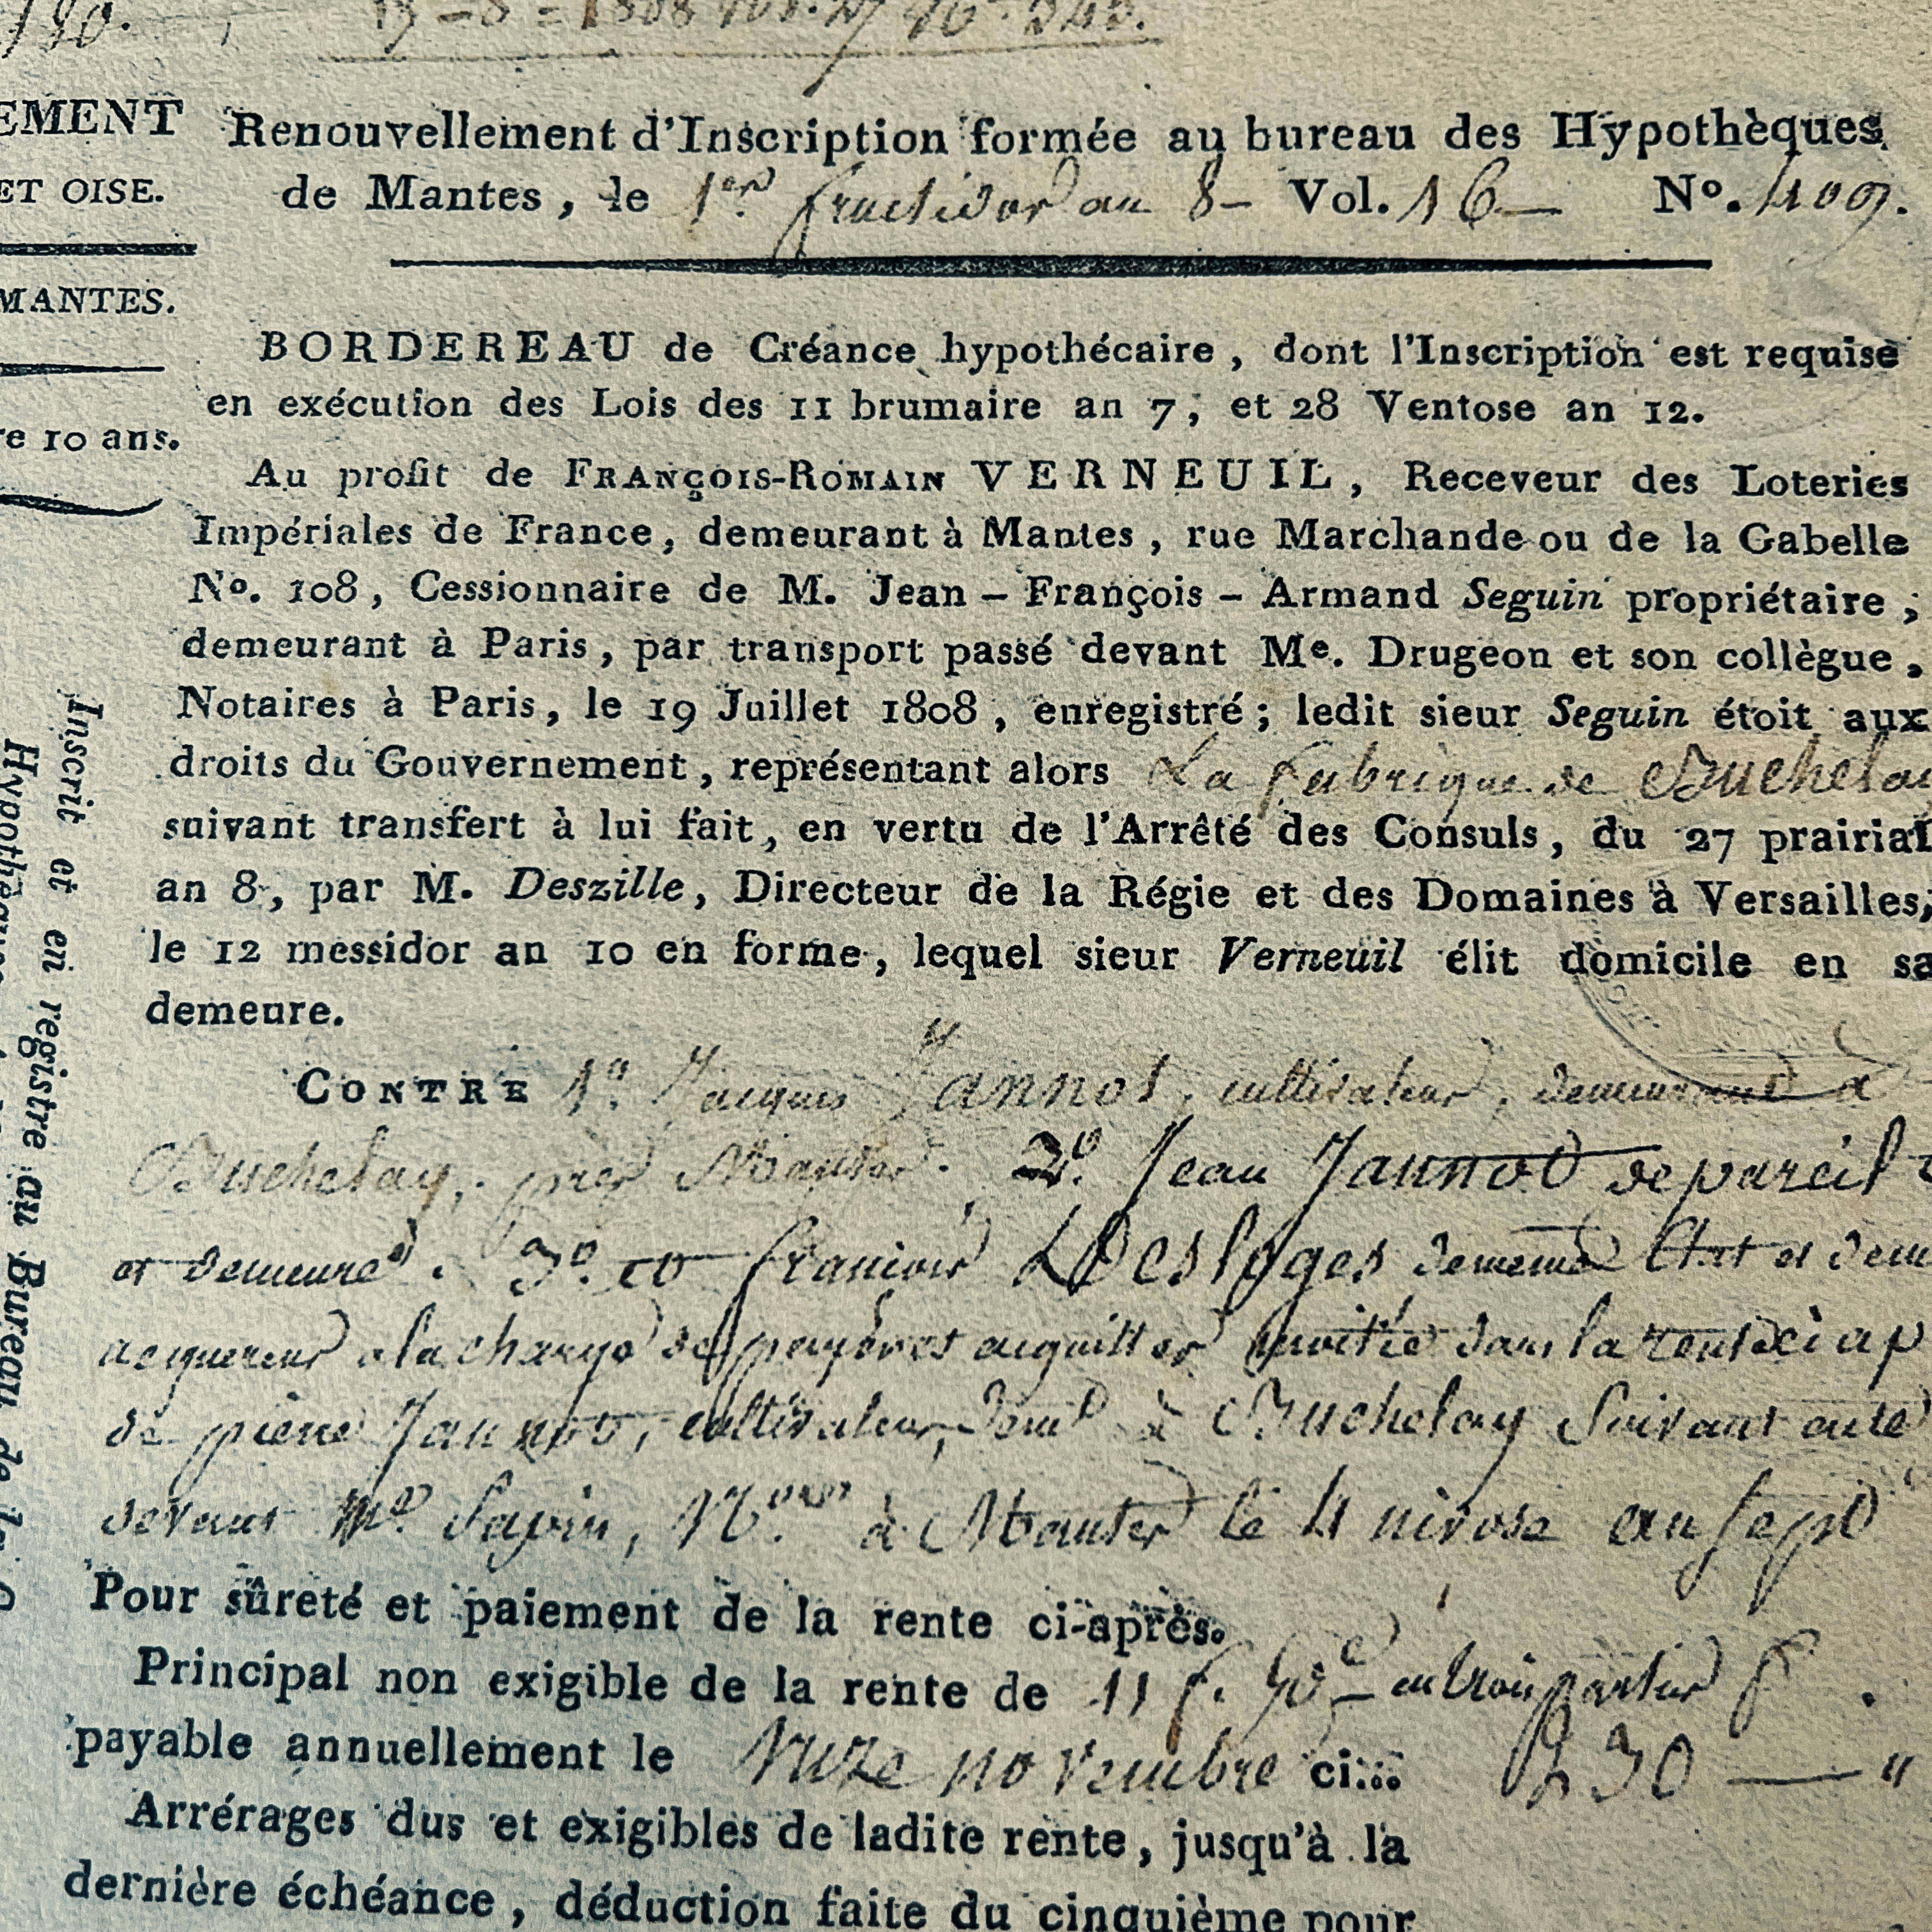 EMENT
ET OISE.
MANTES.
re 10 ans.
Renouvellement d'Inscription formée au bureau des Hypothèques
de Mantes, le 1er fructidor an 8 – Vol. 16 — No. 409.
BORDEREAU de Créance hypothécaire, dont l'Inscription est requise
en exécution des Lois des 11 brumaire an 7, et 28 Ventose an 12.
Au profit de FRANÇOIS-ROMAIN VERNEUIL, Receveur des Loteries
Impériales de France, demeurant à Mantes, rue Marchande ou de la Gabelle
No. 108, Cessionnaire de M. Jean – François – Armand Seguin propriétaire,
demeurant à Paris, par transport passé devant Me. Drugeon et son collègue,
Notaires à Paris, le 19 Juillet 1808, enregistré; ledit sieur Seguin étoit aux
droits du Gouvernement, représentant alors La fabrique de Buchelay
suivant transfert à lui fait, en vertu de l'Arrêté des Consuls, du 27 prairial
an 8, par M. Deszille, Directeur de la Régie et des Domaines à Versailles,
le 12 messidor an 10 en forme, lequel sieur Verneuil élit domicile en sa
demeure.
CONTRE 1o. Jacques Jannot, cultivateur, demeurant à
Buchelay, près Mantes. 2o. Jean Jannot de pareil
et demeure. 3o. et françois Desloges de même Etat et dem
acquereur à la charge de acquitter moitié dans la rente ci ap
de pierre Jannot, cultivateur, demt à Buchelay Suivant acte
devant Me. Sapin, Nre à Mantes le 4 nivose an sept
Pour sûreté et paiement de la rente ci-après.
Principal non exigible de la rente de 11 f. 50c – en trois parties f
payable annuellement le onze novembre ci... 230 — "
Arrérages dus et exigibles de ladite rente, jusqu'à la
dernière échéance, déduction faite du cinquième pour
Inscrit et en registre au Bureau de